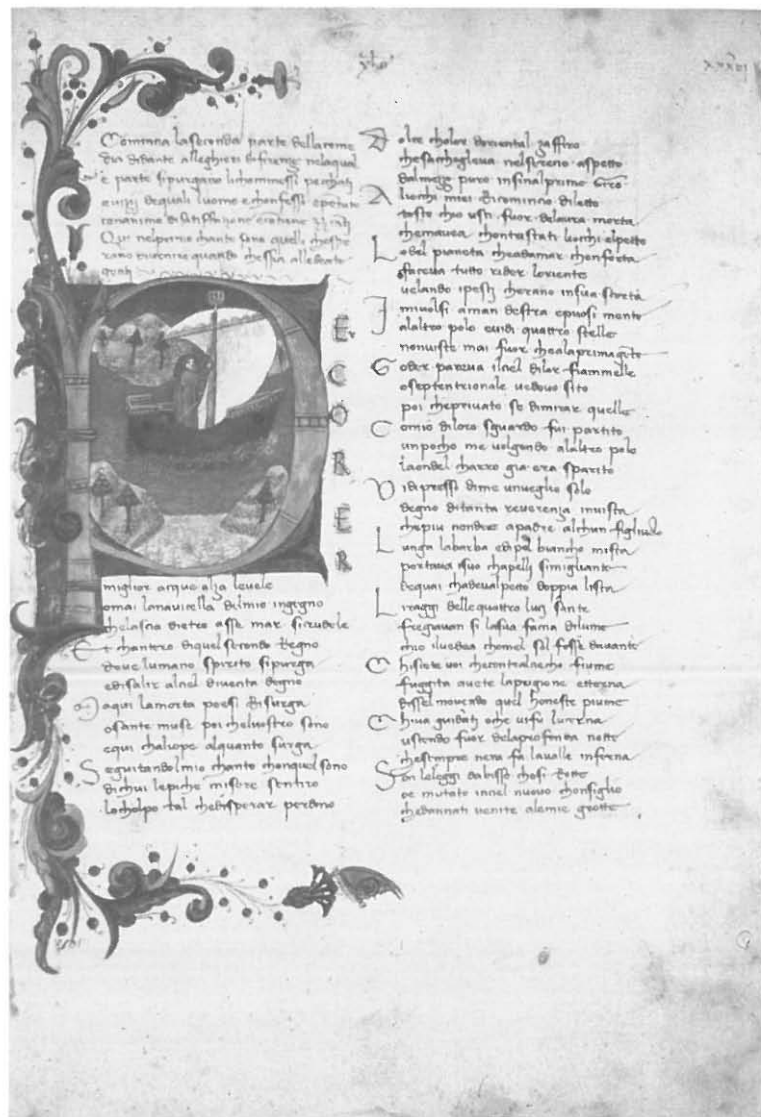 xxxvj
Comincia la seconda parte della come
dia di dante alleghieri di firenze nela qual
parte si purgano li chommessi pechati
e vizij de quali luomo e chonfesso e pentuto
con animo di satisfazione e contiene
Qui nel primo chanto sono quelli che spe
rano
PEr
C
O
R
E
R
miglior acque alza le vele
omai la navicella del mio ingegno
che lascia dietro asse mar si crudele
Et chantero di quel secondo regno
dove lumano spirito si purga
e di salir al ciel diventa degno
Ma qui la morta poesi risurga
o sante muse poi che vostro sono
e qui chaliope alquanto surga
Seguitando l mio chanto chon quel sono
di chui le piche misere sentiro
lo cholpo tal che disperar perdono
Dolce cholor doriental zaffiro
che sachoglieva nel sereno aspetto
dal mezzo puro insin al primo giro
A li ochi miei ricomincio diletto
tosto chio usci fuor de laura morta
che mavea chontrastati li ochi el petto
Lo bel pianeta che ad amar chonforta
faceva tutto rider loriente
velando i pesci cherano in sua scorta
I mi volsi a man destra e puosi mente
a laltro polo e vidi quattro stelle
non viste mai fuor che a la prima gente
Goder pareva il ciel di lor fiammelle
o septentrionale vedovo sito
poi che privato se di mirar quelle
Comio di loro sguardo fui partito
un pocho me volgendo a laltro polo
la onde l charro gia era sparito
Vidi presso di me un veglio solo
degno di tanta reverenzia in vista
che piu non dee a padre alchun figliuolo
Lunga la barba e di pel biancho mista
portava i suo chapelli simigliante
de quai chadeva al petto doppia lista
Li raggi delle quattro luci sante
fregiavan si la sua facia di lume
chio l vedea chome l sol fosse davante
Chi siete voi che contra l ciecho fiume
fuggita avete la pregione etterna
dissel movendo quel honeste piume
Chi va guidati o che vi fu lucerna
uscendo fuor de la profonda notte
che sempre nera fa la valle inferna
Son le leggi dabisso chosi rotte
o e mutato in ciel nuovo chonsiglio
che dannati venite a le mie grotte